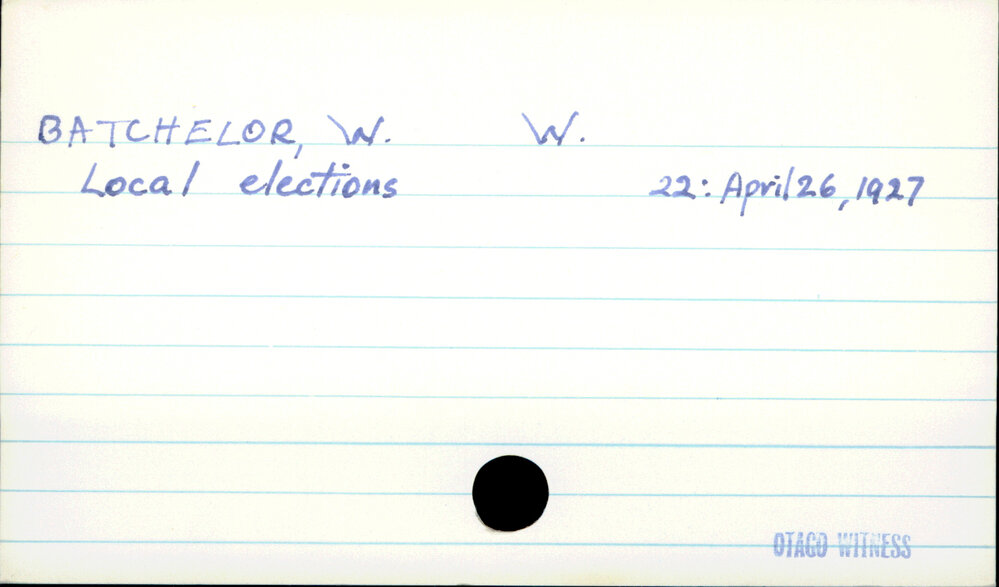 BATCHELOR, W. W.
Local elections 22: April 26, 1927
OTAGO WITNESS